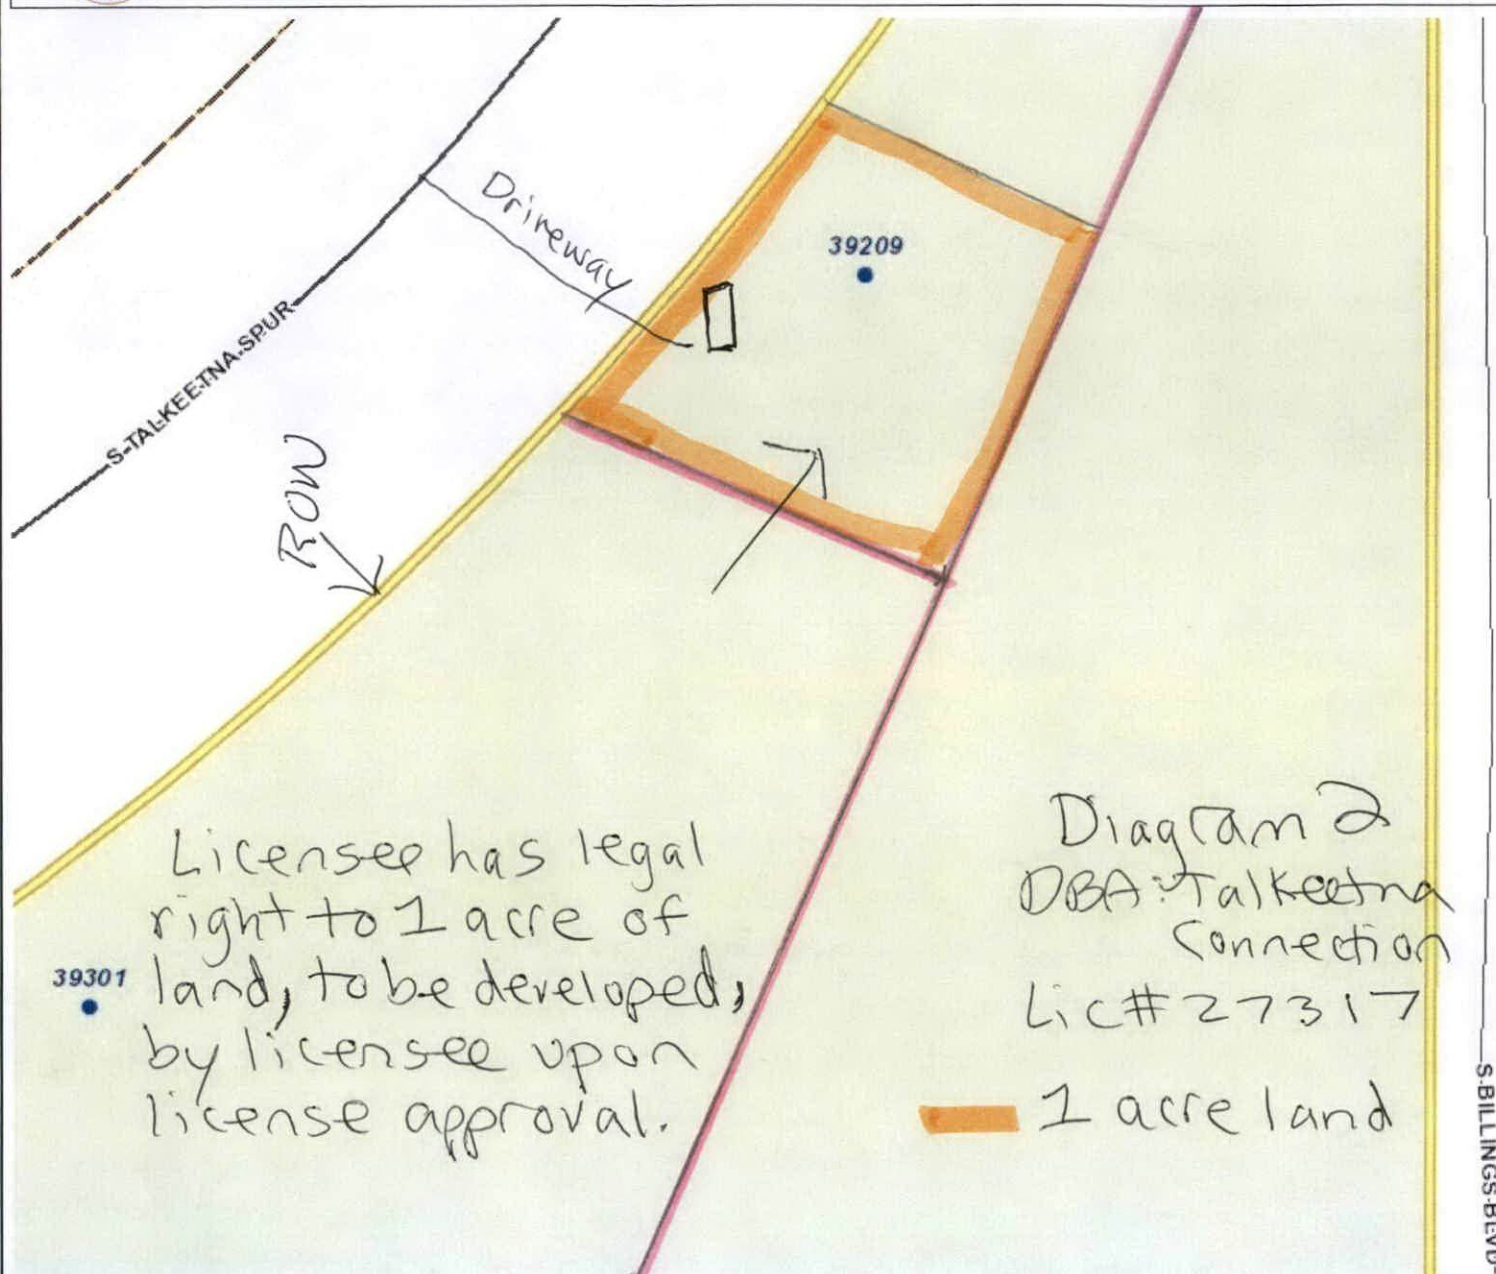 Driveway
39209
S-TALKEETNA-SPUR
ROW
Licensee has legal
right to 1 acre of
land, to be developed,
by licensee upon
license approval.
39301
Diagram 2
DBA: Talkeetna
Connection
Lic# 27317
1 acre land
S-BILLINGS-BLVD